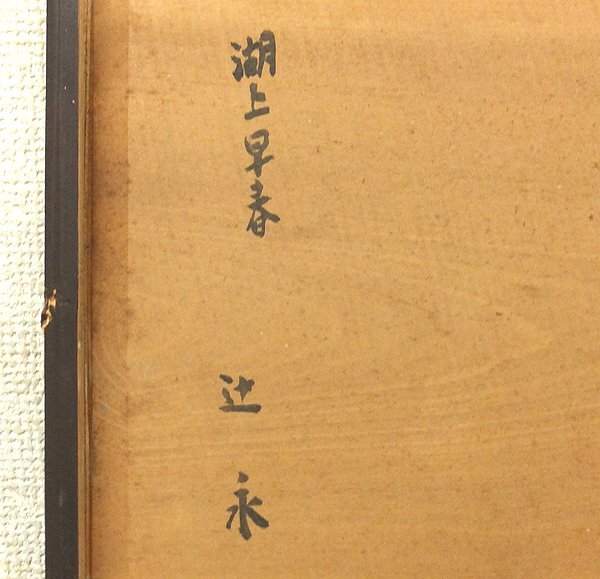 湖上早春
辻永